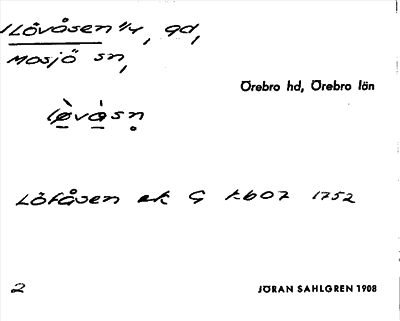 Lövåsen 1/4, gd,
Mosjö sn,
Örebro hd, Örebro län
lø̀và̀sn̥
Löfåsen ek G kb07 1752
2
JÖRAN SAHLGREN 1908